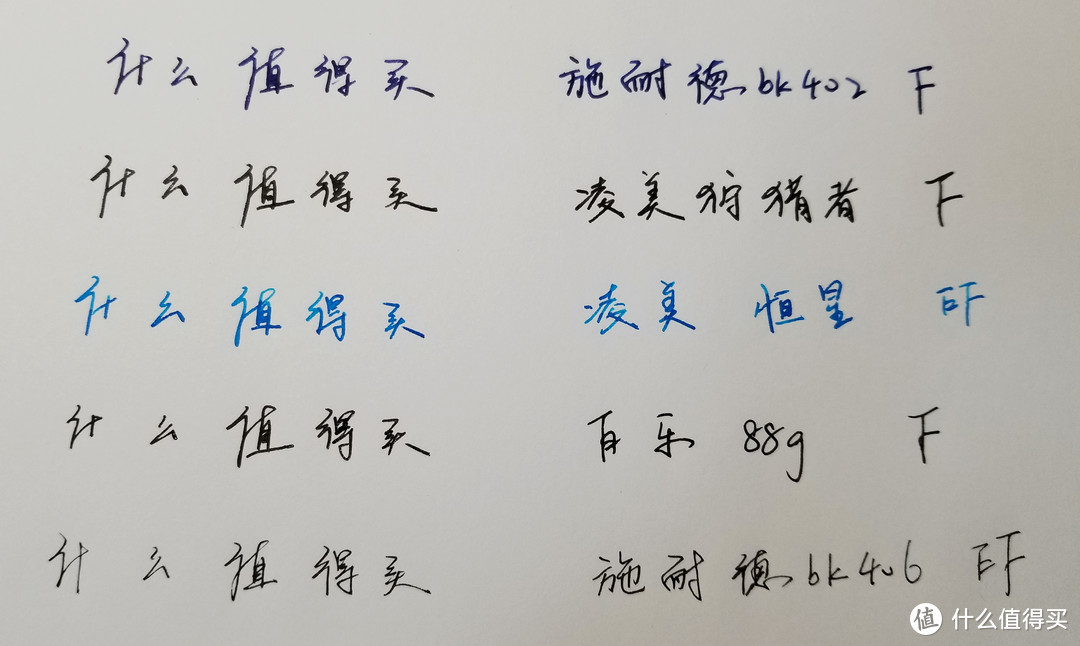 什么值得买 施耐德bk402 F
什么值得买 凌美狩猎者 F
什么值得买 凌美 恒星 EF
什么值得买 百乐 88g F
什么值得买 施耐德bk406 EF
值 什么值得买